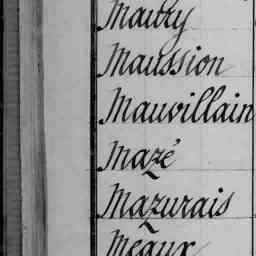 Mautry
Maussion
Mauvillain
Mazé
Mazurais
Meaux